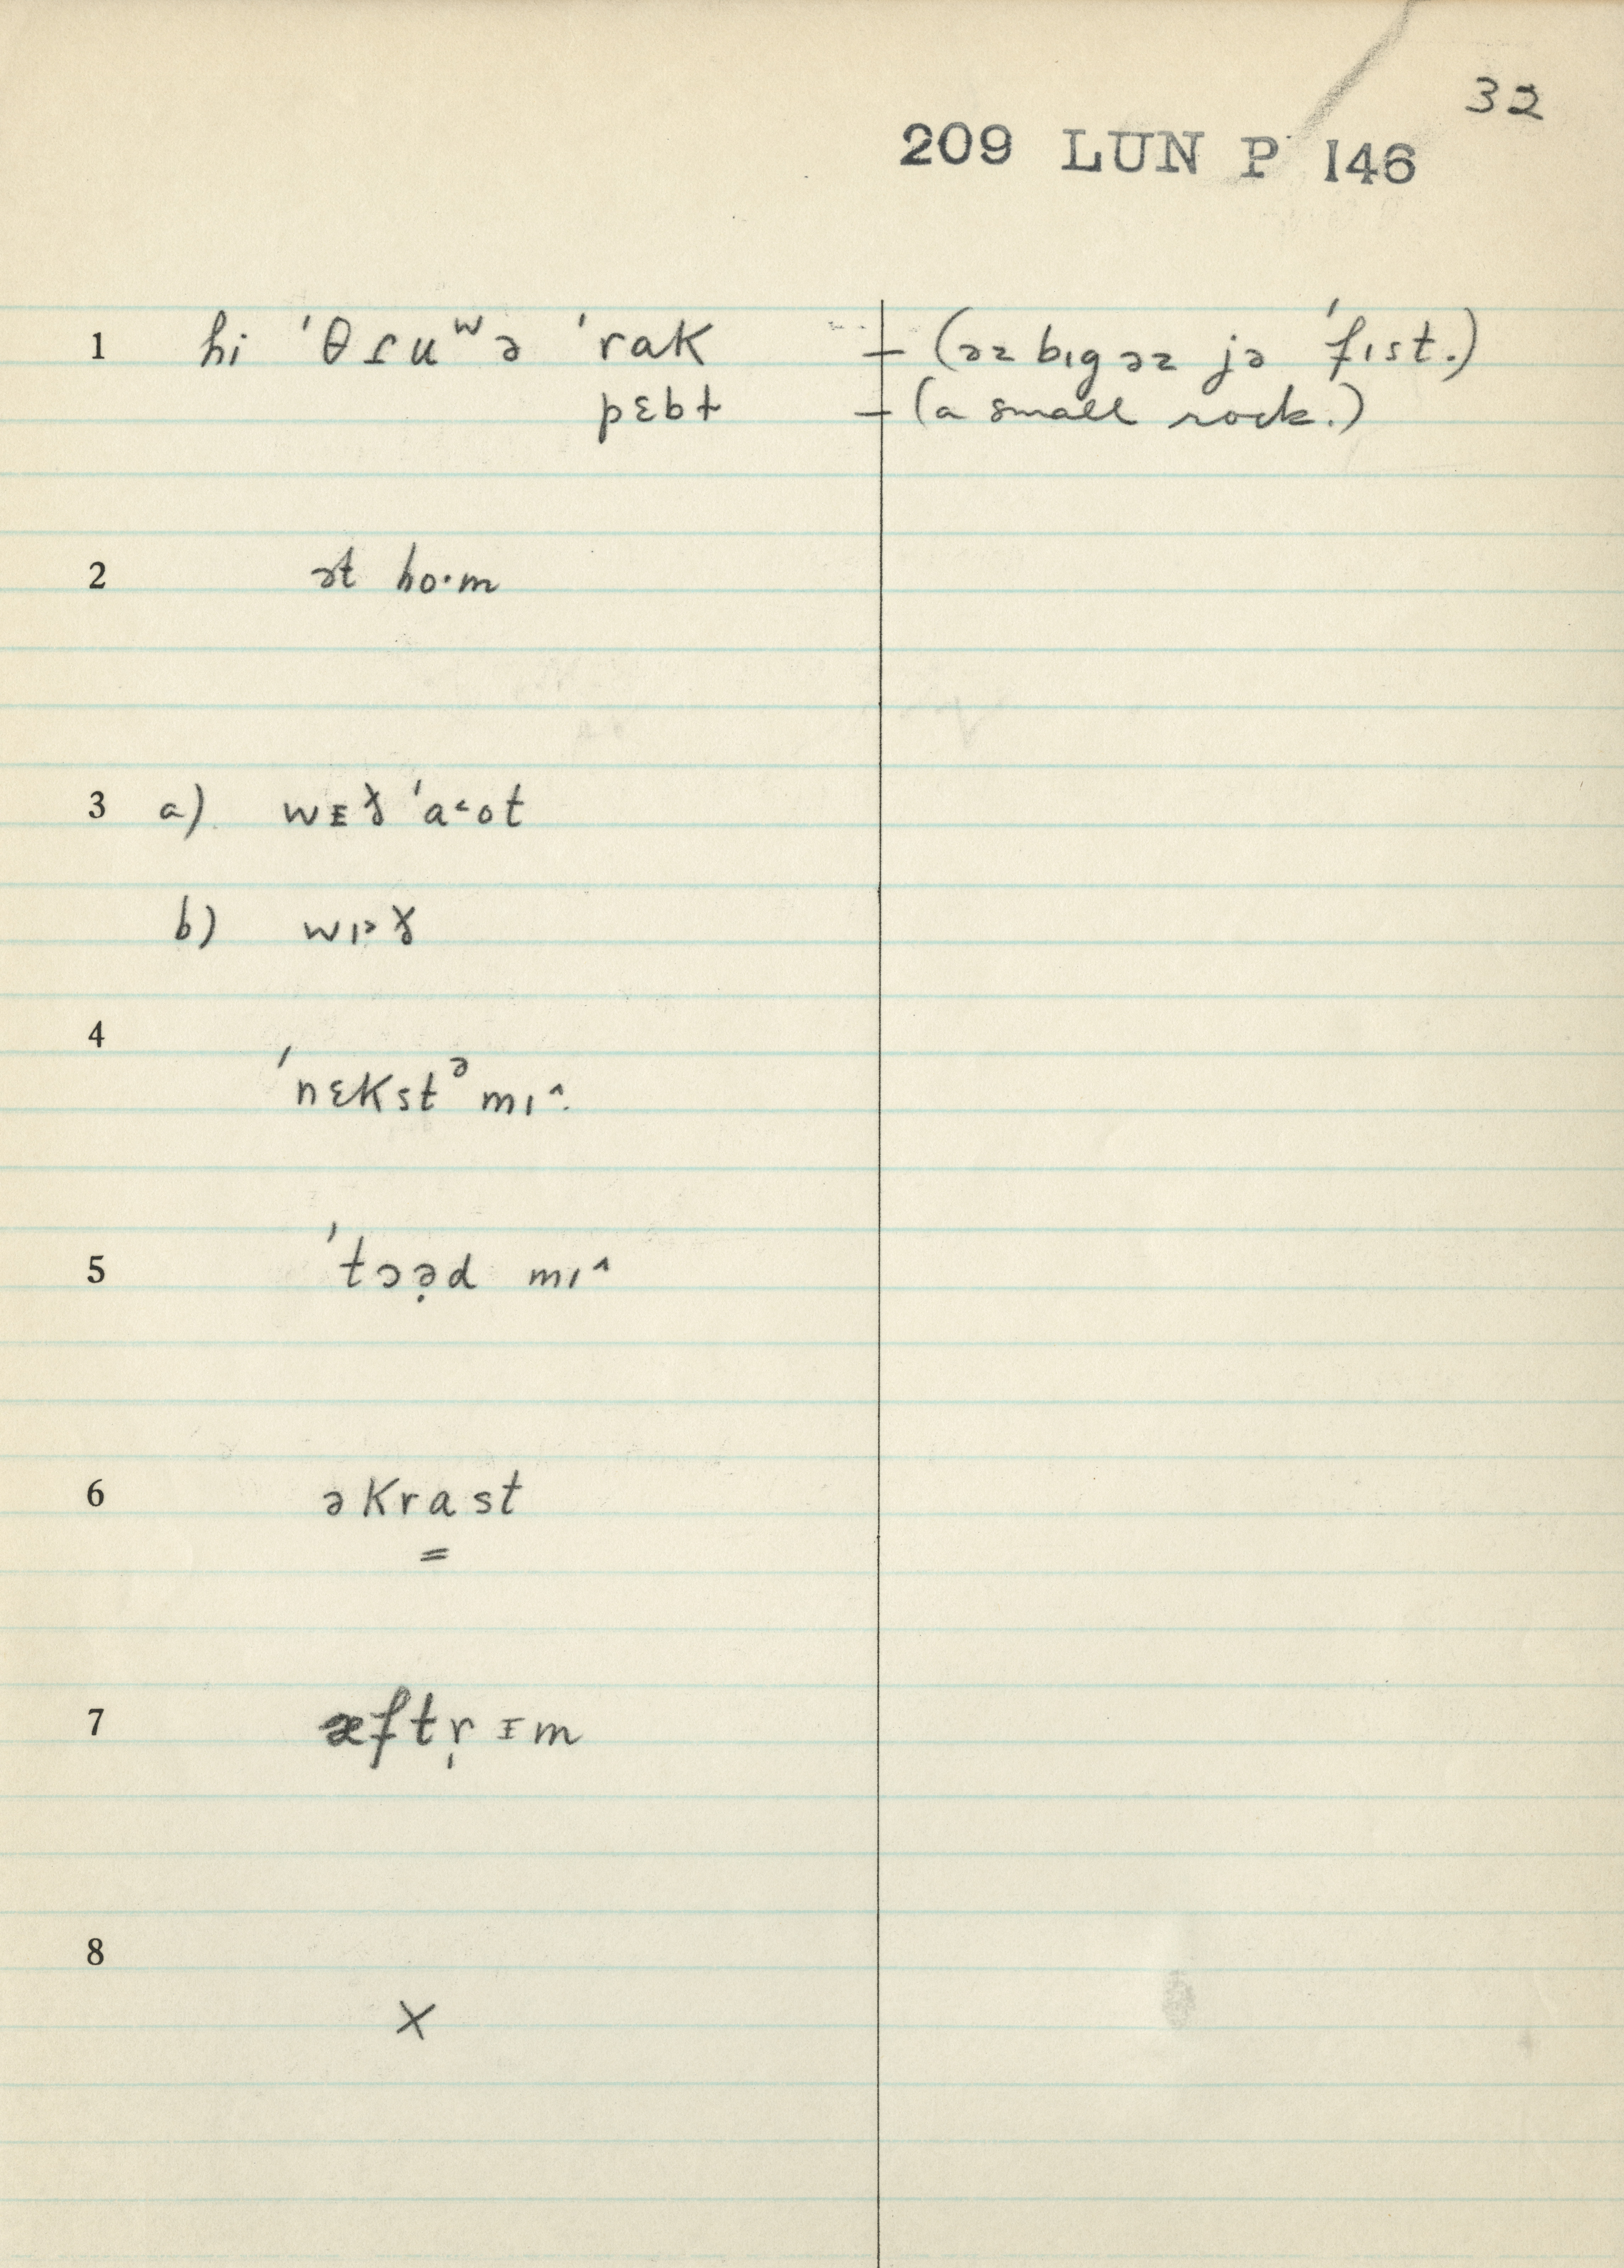 32
209 LUN P 146
1 hi ˈθɾuʷə ˈrak – (əz bɪg əz jə ˈfɪst.)
pɛbɫ – (a small rock.)
2 ət ho·m
3 a) wᴇɤ ˈa˂ot
b) wɪ˃ɤ
4 ˈnɛkstᵊ mɪ^
5 ˈtɔə̣d mɪ^
6 əkrast
=
7 æftr̩ ɪm
8 X